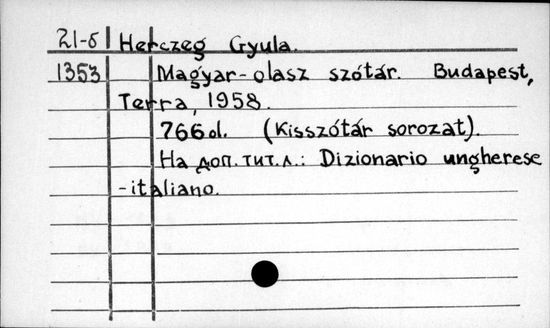 21-5 Herczeg Gyula.
1353 Magyar-olasz szótár. Budapest,
Terra, 1958.
766 ol. (Kisszótár sorozat).
На доп. тит. л.: Dizionario ungherese
-italiano.